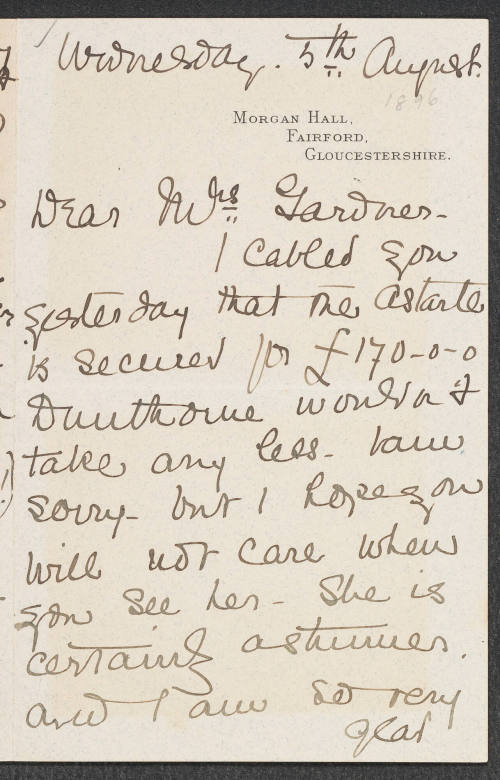 Wednesday. 5th August.
1896
MORGAN HALL,
FAIRFORD,
GLOUCESTERSHIRE.
Dear Mrs Gardner-
I cabled you
yesterday that the Astarte
is secured for £170-0-0
Dunthorne wouldn't
take any less. I am
sorry- but I hope you
will not care when
you see her- She is
certainly a stunner.
and I am so very
glad